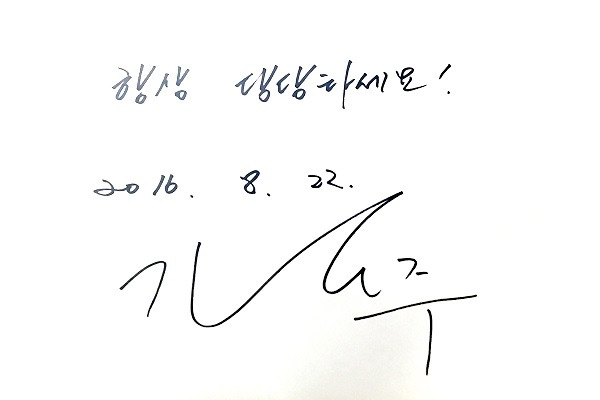 항상 당당하세요!
2016. 8. 22.